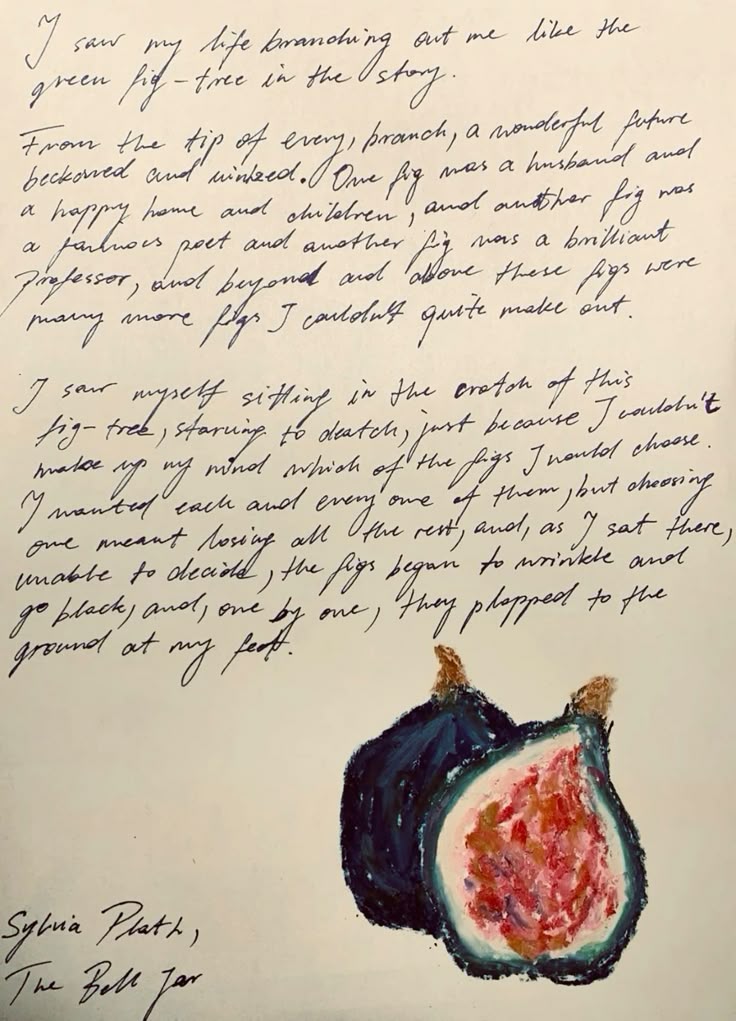 I saw my life branching out me like the
green fig-tree in the story.
From the tip of every, branch, a wonderful future
beckoned and winked. One fig was a husband and
a happy home and children, and another fig was
a famous poet and another fig was a brilliant
professor, and beyond and above these figs were
many more figs I couldn't quite make out.
I saw myself sitting in the crotch of this
fig-tree, starving to death, just because I couldn't
make up my mind which of the figs I would choose.
I wanted each and every one of them, but choosing
one meant losing all the rest, and, as I sat there,
unable to decide, the figs began to wrinkle and
go black, and, one by one, they plopped to the
ground at my feet.
Sylvia Plath,
The Bell Jar